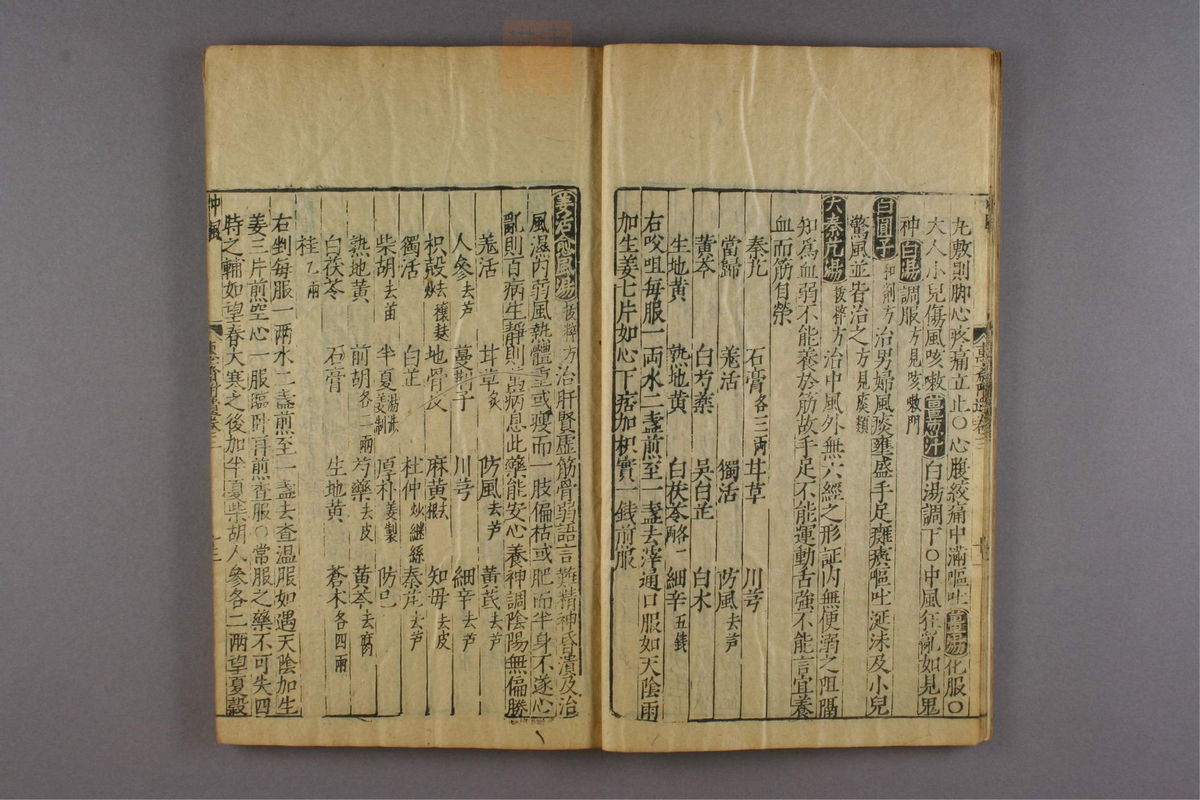 丸敷則脚心疼痛立止〇心腹絞痛中滿嘔吐薑湯化服〇
大人小兒傷風咳嗽薑湯汁白湯調下〇中風狂亂如見鬼
神白湯調服方見咳嗽門
白圓子和劑方治男婦風痰壅盛手足癱瘓嘔吐涎沫及小兒
驚風並皆治之方見痰類
大秦艽湯拔粹方治中風外無六經之形証內無便溺之阻隔
知為血弱不能養於筋故手足不能運動舌強不能言宜養
血而筋自榮
秦艽 石膏各三兩 甘草 川芎
當歸 羗活 獨活 防風去芦
黃芩 白芍藥 吳白芷 白木
生地黃 熟地黃 白茯苓酪一 細辛五錢
右㕮咀每服一兩水二盞煎至一盞去滓通口服如天陰雨
加生姜七片如心下痞加枳實一錢前服
羗活愈風湯拔粹方治肝腎虛筋骨弱語言難精神昏潰及治
風濕內弱風熱體重或瘦而一肢偏枯或肥而半身不遂心
亂則百病生靜則萬病息此藥能安心養神調陰陽無偏勝
羗活 甘草炙 防風去芦 黃芪去芦
人參去芦 蔓荊子 川芎 細辛去芦
枳殼去穰麩炒 地骨皮 麻黃去根 知母去皮
獨活 白芷 杜仲炒繼絲 秦艽去芦
柴胡去苗 半夏湯洗姜制 厚朴姜製 防巳
熟地黃 前胡各二兩 芍藥去皮 黃芩去腐
白茯苓 石膏 生地黃 蒼术各四兩
桂乙兩
右剉每服一兩水二盞煎至一盞去査溫服如遇天陰加生
姜三片煎空心一服臨卧再煎査服〇常服之藥不可失四
時之輔如望春大寒之後加半夏柴胡人參各二兩望夏穀
中風